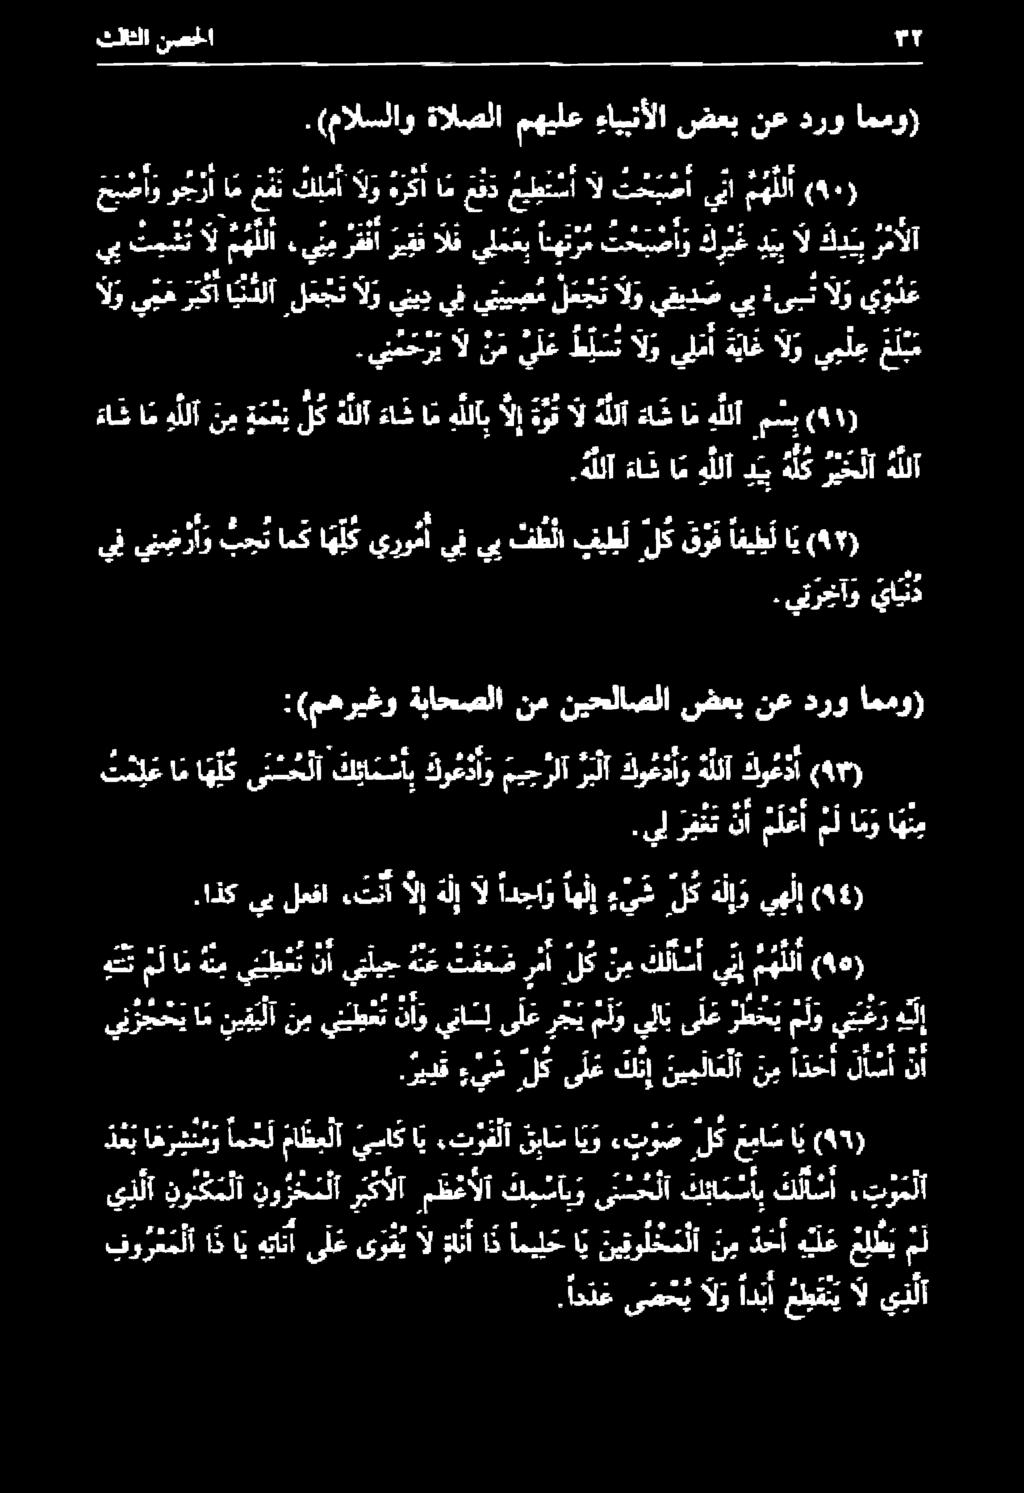 ٣٢
الحصن الثالث
(ومما ورد عن بعض الأنبياء عليهم الصلاة والسلام).
(٩٠) أَللَّهُمَّ إِنِّي أَصْبَحْتُ لاَ أَسْتَطِيعُ دَفْعَ مَا أَكْرَهُ وَلاَ أَمْلِكُ نَفْعَ مَا أَرْجُو وَأَصْبَحَ
آلأَمْرُ بِيَدِكَ لاَ بِيَدِ غَيْرِكَ وَأَصْبَحْتُ مُرْتَهِناً بِعَمَلِي فَلاَ فَقِيرَ أَفْقَرُ مِنِّي، أَللَّهُمَّ لاَ تُشْمِتْ بِي
عَدُوِّي وَلاَ تَسُىءْ بِي صَدِيقِي وَلاَ تَجْعَلْ مُصِيبَتِي فِي دِينِي وَلاَ تَجْعَلِ آلدُّنْيَا أَكْبَرَ هَمِّي وَلاَ
مَبْلَغَ عِلْمِي وَلاَ غَايَةَ أَمَلِي وَلاَ تُسَلِّطْ عَلَيَّ مَنْ لاَ يَرْحَمُنِي.
(٩١) بِسْمِ آللَّهِ مَا شَاءَ آللَّهُ لاَ قُوَّةَ إِلاَّ بِآللَّهِ مَا شَاءَ آللَّهُ كُلُّ نِعْمَةٍ مِنَ آللَّهِ مَا شَاءَ
آللَّهُ آلْخَيْرُ كُلُّهُ بِيَدِ آللَّهِ مَا شَاءَ آللَّهُ.
(٩٢) يَا لَطِيفاً فَوْقَ كُلِّ لَطِيفٍ الْطُفْ بِي فِي أُمُورِي كُلِّهَا كَمَا تُحِبُّ وَأَرْضِنِي فِي
دُنْيَايَ وَآخِرَتِي.
(ومما ورد عن بعض الصالحين من الصحابة وغيرهم):
(٩٣) أَدْعُوكَ آللَّهُ وَأَدْعُوكَ آلْبَرَّ آلرَّحِيمَ وَأَدْعُوكَ بِأَسْمَائِكَ آلْحُسْنَى كُلِّهَا مَا عَلِمْتُ
مِنْهَا وَمَا لَمْ أَعْلَمْ أَنْ تَغْفِرَ لِي.
(٩٤) إِلَهِي وَإِلَهَ كُلِّ شَيْءٍ إِلَهاً وَاحِداً لاَ إِلَهَ إِلاَّ أَنْتَ، افعل بي كذا.
(٩٥) أَللَّهُمَّ إِنِّي أَسْأَلُكَ مِنْ كُلِّ أَمْرٍ ضَعُفَتْ عَنْهُ حِيلَتِي أَنْ تُعْطِيَنِي مِنْهُ مَا لَمْ تَنْتَهِ
إِلَيْهِ رَغْبَتِي وَلَمْ يَخْطُرْ عَلَى بَالِي وَلَمْ يَجْرِ عَلَى لِسَانِي وَأَنْ تُعْطِيَنِي مِنَ آلْيَقِينِ مَا يَحْجُزُنِي
أَنْ أَسْأَلَ أَحَداً مِنَ آلْعَالَمِينَ إِنَّكَ عَلَى كُلِّ شَيْءٍ قَدِيرٌ.
(٩٦) يَا سَامِعَ كُلِّ صَوْتٍ، وَيَا سَابِقَ آلْفَوْتِ، يَا كَاسِيَ آلْعِظَامِ لَحْماً وَمُنْشِرَهَا بَعْدَ
آلْمَوْتِ، أَسْأَلُكَ بِأَسْمَائِكَ آلْحُسْنَى وَبِآسْمِكَ آلأَعْظَمِ آلأَكْبَرِ آلْمَخْزُونِ آلْمَكْنُونِ آلَّذِي
لَمْ يَطَّلِعْ عَلَيْهِ أَحَدٌ مِنَ آلْمَخْلُوقِينَ يَا حَلِيماً ذَا أَنَاةٍ لاَ يَقْوَى عَلَى أَنَاتِهِ يَا ذَا آلْمَعْرُوفِ
آلَّذِي لاَ يَنْقَطِعُ أَبَداً وَلاَ يُحْصَى عَدَداً.